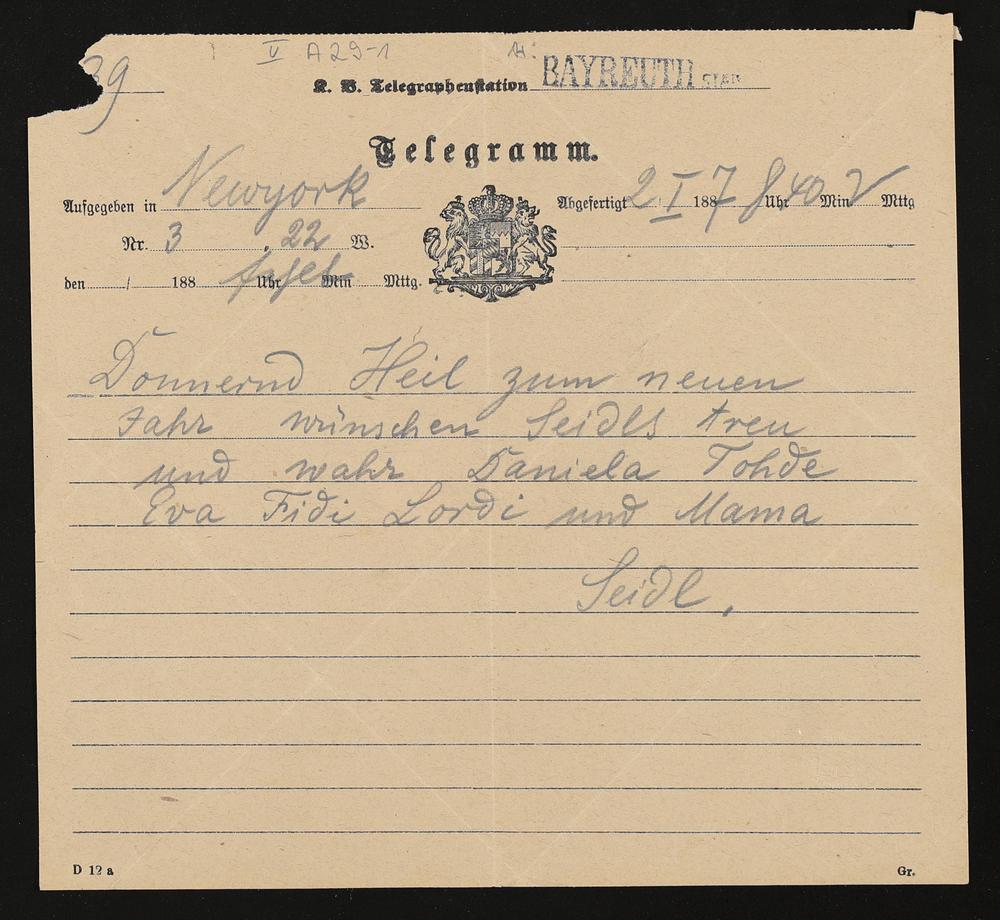 39
V A 29-1
K. B. Telegraphenstation BAYREUTH
Telegramm.
Aufgegeben in Newyork
Abgefertigt 2 I 1887 8 Uhr 40 Min V Mttg
Nr. 3 22 W.
den / 188 Uhr Min Mttg.
Donnernd Heil zum neuen
Jahr wünschen Seidls treu
und wahr Daniela Tohde
Eva Fidi Lordi und Mama
Seidl.
D 12 a
Gr.